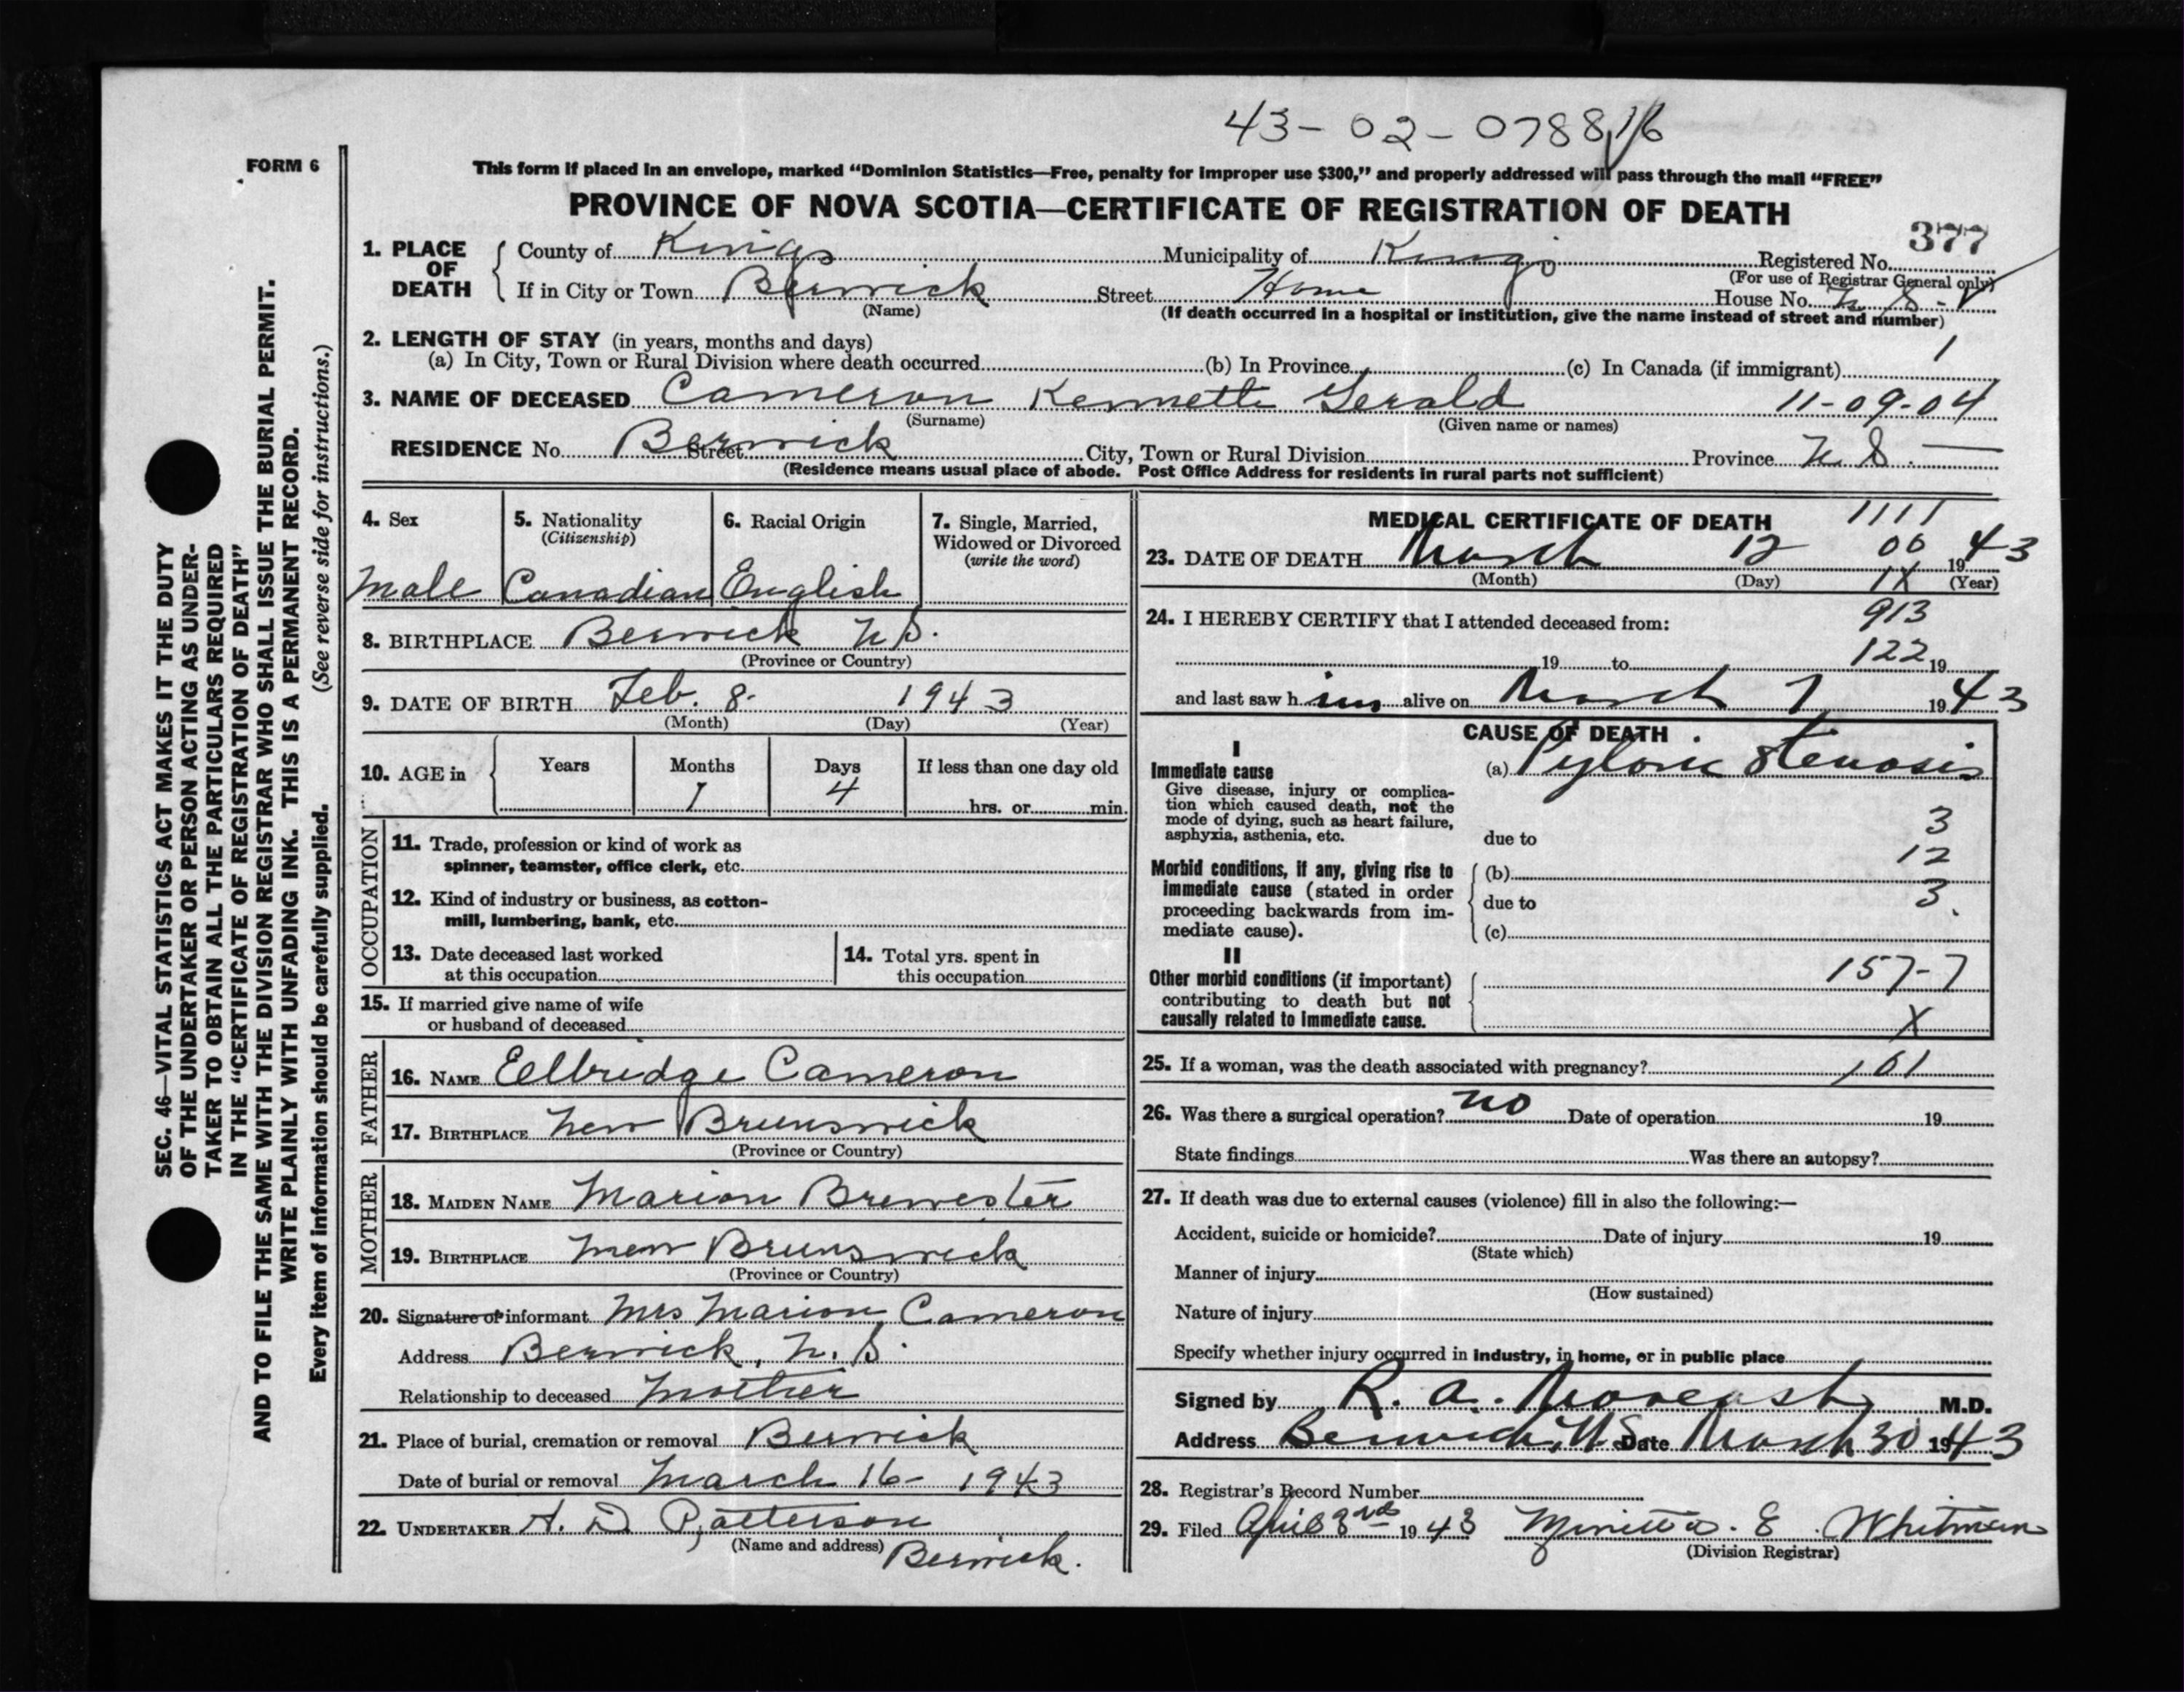 43-02-078816
FORM 6
This form if placed in an envelope, marked “Dominion Statistics—Free, penalty for improper use $300,” and properly addressed will pass through the mail “FREE”
PROVINCE OF NOVA SCOTIA—CERTIFICATE OF REGISTRATION OF DEATH
377
1. PLACE OF DEATH County of Kings Municipality of Kings Registered No.
(For use of Registrar General only)
If in City or Town Berwick Street Home House No. N.S.
(Name) (If death occurred in a hospital or institution, give the name instead of street and number)
2. LENGTH OF STAY (in years, months and days) 1
(a) In City, Town or Rural Division where death occurred (b) In Province (c) In Canada (if immigrant)
3. NAME OF DECEASED Cameron Kenneth Gerald 11-09-04
(Surname) (Given name or names)
RESIDENCE No. Berwick Street City, Town or Rural Division Province N.S.
(Residence means usual place of abode. Post Office Address for residents in rural parts not sufficient)
4. Sex Male
5. Nationality (Citizenship) Canadian
6. Racial Origin English
7. Single, Married, Widowed or Divorced (write the word)
8. BIRTHPLACE Berwick N.S.
(Province or Country)
9. DATE OF BIRTH Feb. 8. 1943
(Month) (Day) (Year)
10. AGE in Years Months Days If less than one day old
1 4 hrs. or min.
OCCUPATION
11. Trade, profession or kind of work as
spinner, teamster, office clerk, etc.
12. Kind of industry or business, as cotton-
mill, lumbering, bank, etc.
13. Date deceased last worked
at this occupation
14. Total yrs. spent in
this occupation
15. If married give name of wife
or husband of deceased
FATHER
16. NAME Eelbridge Cameron
17. BIRTHPLACE New Brunswick
(Province or Country)
MOTHER
18. MAIDEN NAME Marion Brewester
19. BIRTHPLACE New Brunswick
(Province or Country)
20. Signature of informant Mrs Marion Cameron
Address Berwick, N.S.
Relationship to deceased Mother
21. Place of burial, cremation or removal Berwick
Date of burial or removal March 16- 1943
22. UNDERTAKER A. D. Patterson
(Name and address) Berwick.
MEDICAL CERTIFICATE OF DEATH 1111
23. DATE OF DEATH March 12 06 1943
(Month) (Day) 1X (Year)
24. I HEREBY CERTIFY that I attended deceased from: 913
19 to 122 19
and last saw him alive on March 7 1943
CAUSE OF DEATH
I
Immediate cause
Give disease, injury or complica-
tion which caused death, not the
mode of dying, such as heart failure,
asphyxia, asthenia, etc.
(a) Pyloric Stenosis
3
due to
12
Morbid conditions, if any, giving rise to
immediate cause (stated in order
proceeding backwards from im-
mediate cause).
(b)
due to 3.
(c)
II
Other morbid conditions (if important)
contributing to death but not
causally related to immediate cause.
157-7
X
25. If a woman, was the death associated with pregnancy? 101
26. Was there a surgical operation? no Date of operation 19
State findings Was there an autopsy?
27. If death was due to external causes (violence) fill in also the following:—
Accident, suicide or homicide? Date of injury 19
(State which)
Manner of injury
(How sustained)
Nature of injury
Specify whether injury occurred in industry, in home, or in public place
Signed by R. A. M.D.
Address Berwick, N.S. Date March 30 1943
28. Registrar's Record Number
29. Filed April 3rd 1943 E. Whitman
(Division Registrar)
SEC. 46—VITAL STATISTICS ACT MAKES IT THE DUTY
OF THE UNDERTAKER OR PERSON ACTING AS UNDER-
TAKER TO OBTAIN ALL THE PARTICULARS REQUIRED
IN THE “CERTIFICATE OF REGISTRATION OF DEATH”
AND TO FILE THE SAME WITH THE DIVISION REGISTRAR WHO SHALL ISSUE THE BURIAL PERMIT.
WRITE PLAINLY WITH UNFADING INK. THIS IS A PERMANENT RECORD.
Every item of information should be carefully supplied. (See reverse side for instructions.)